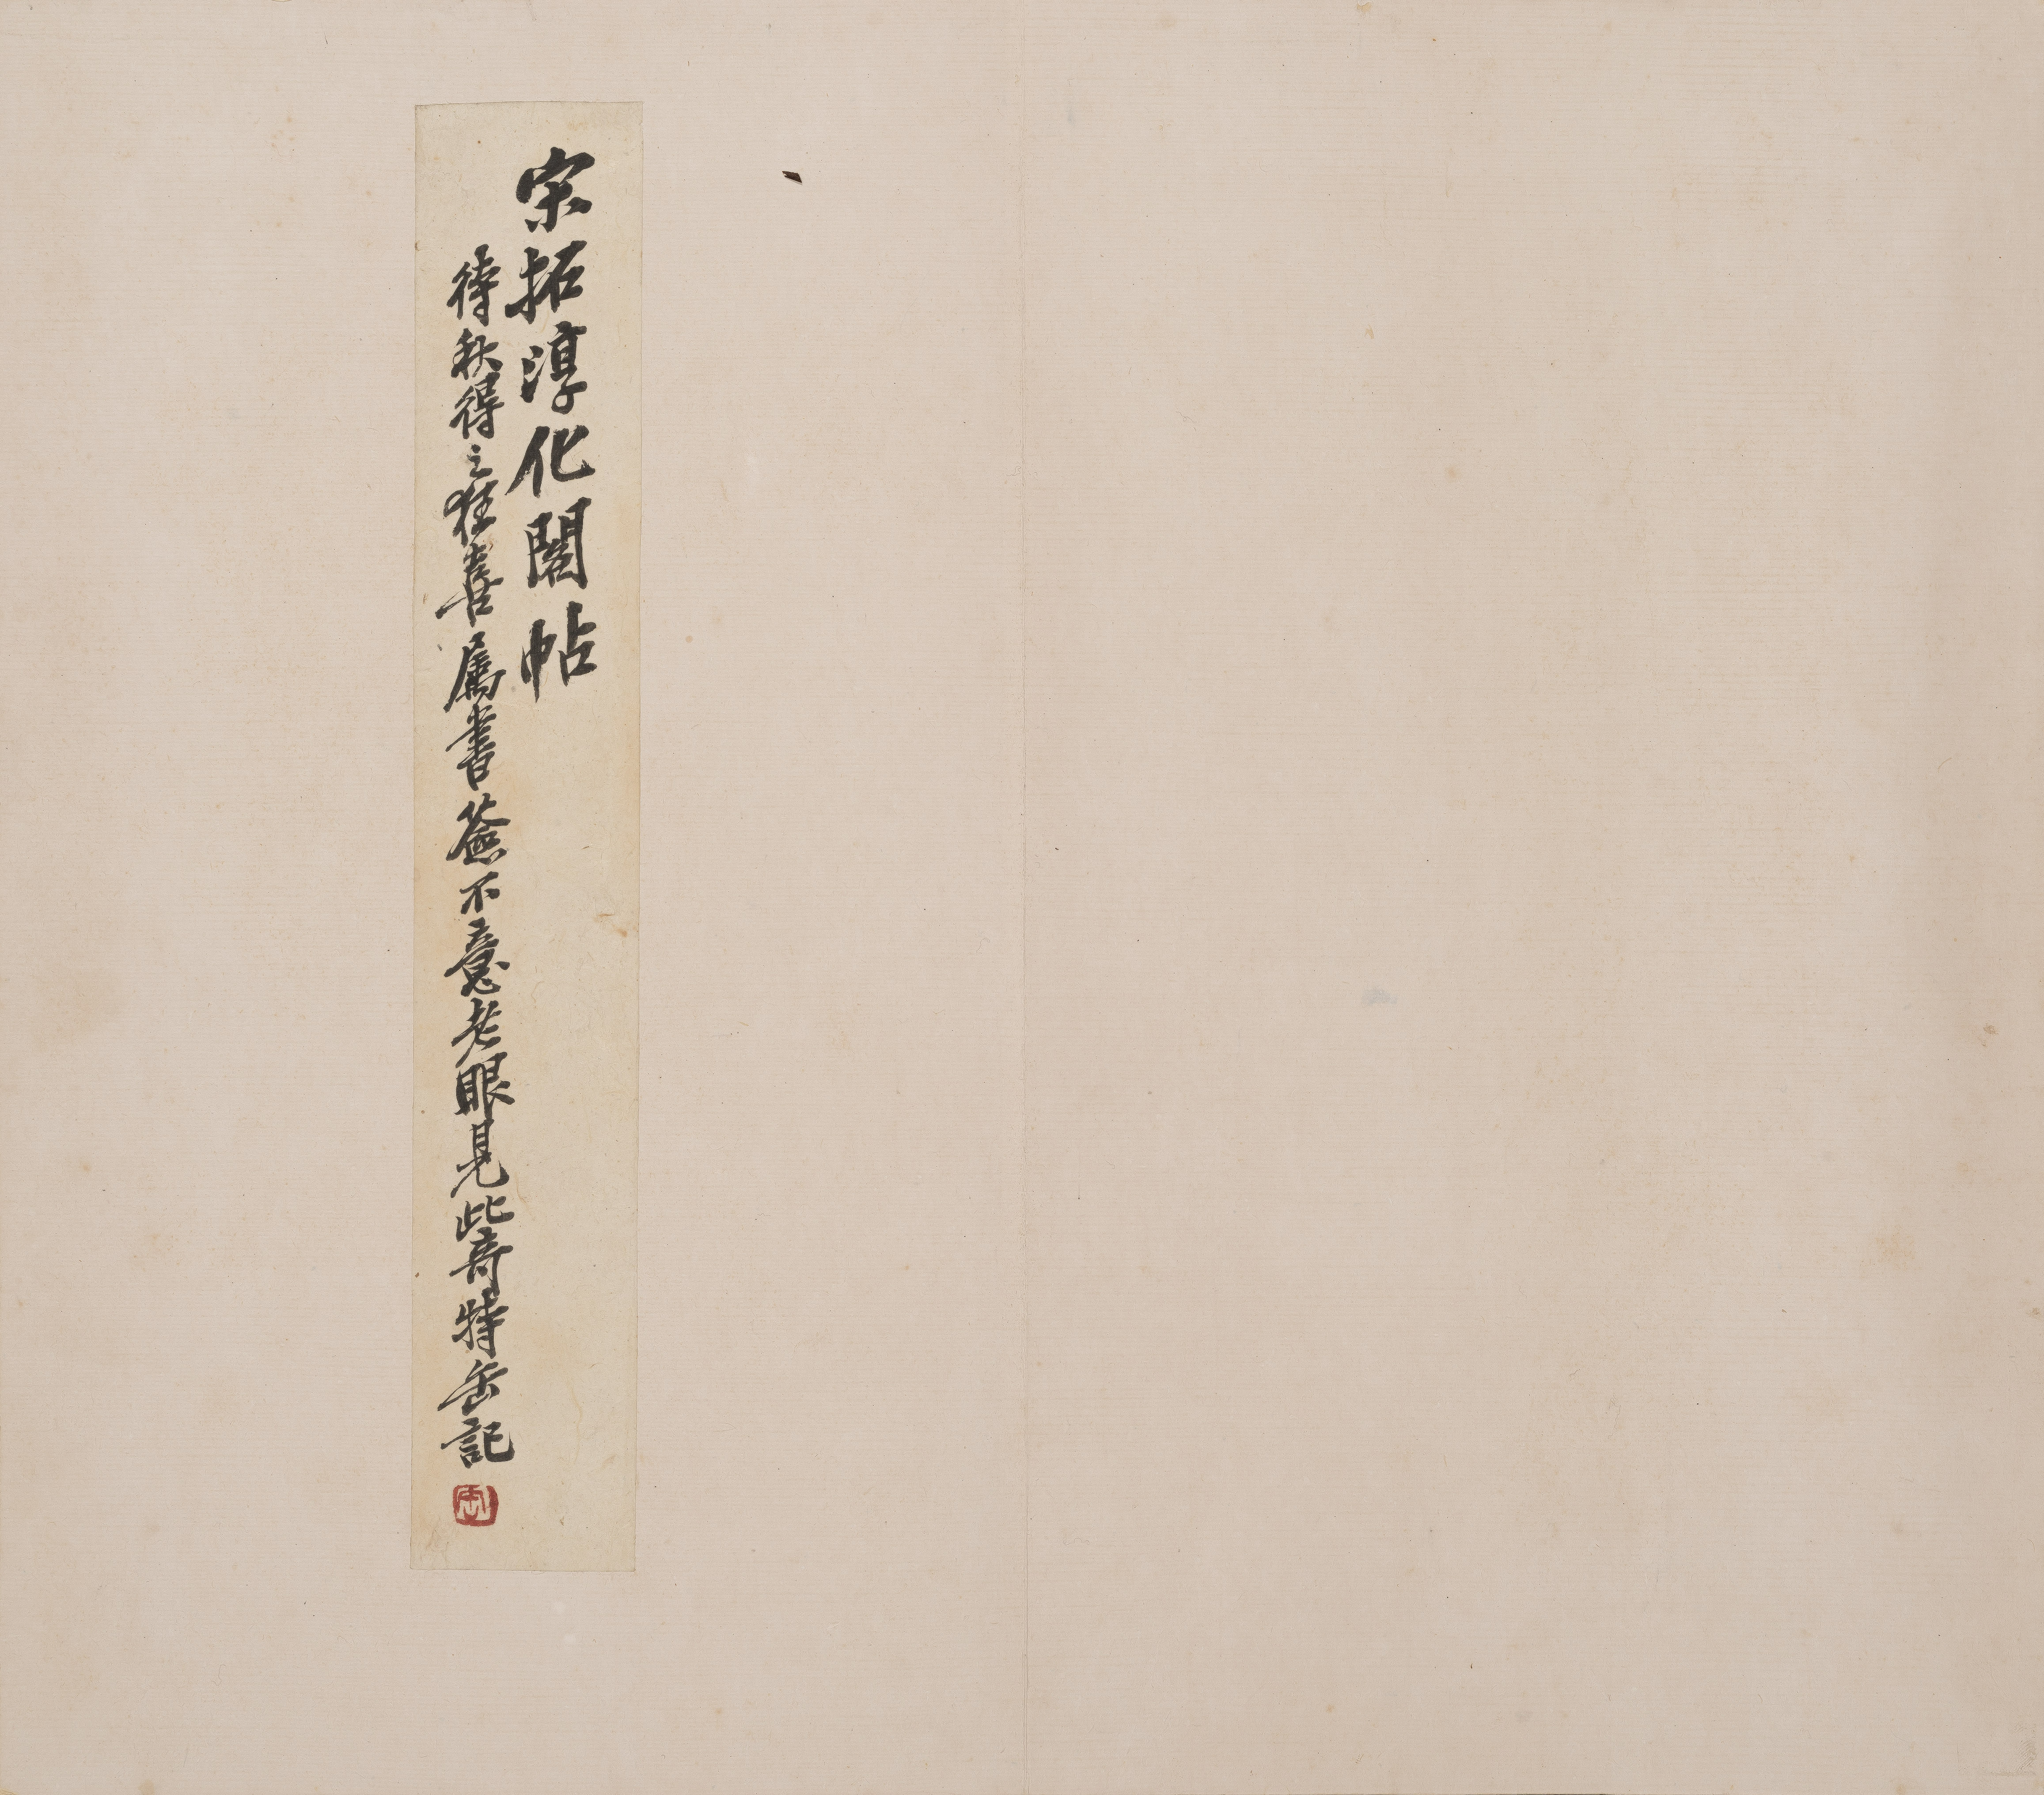 宋拓淳化閣帖
待秋得之狂喜屬書簽不意老眼見此奇特缶記
缶